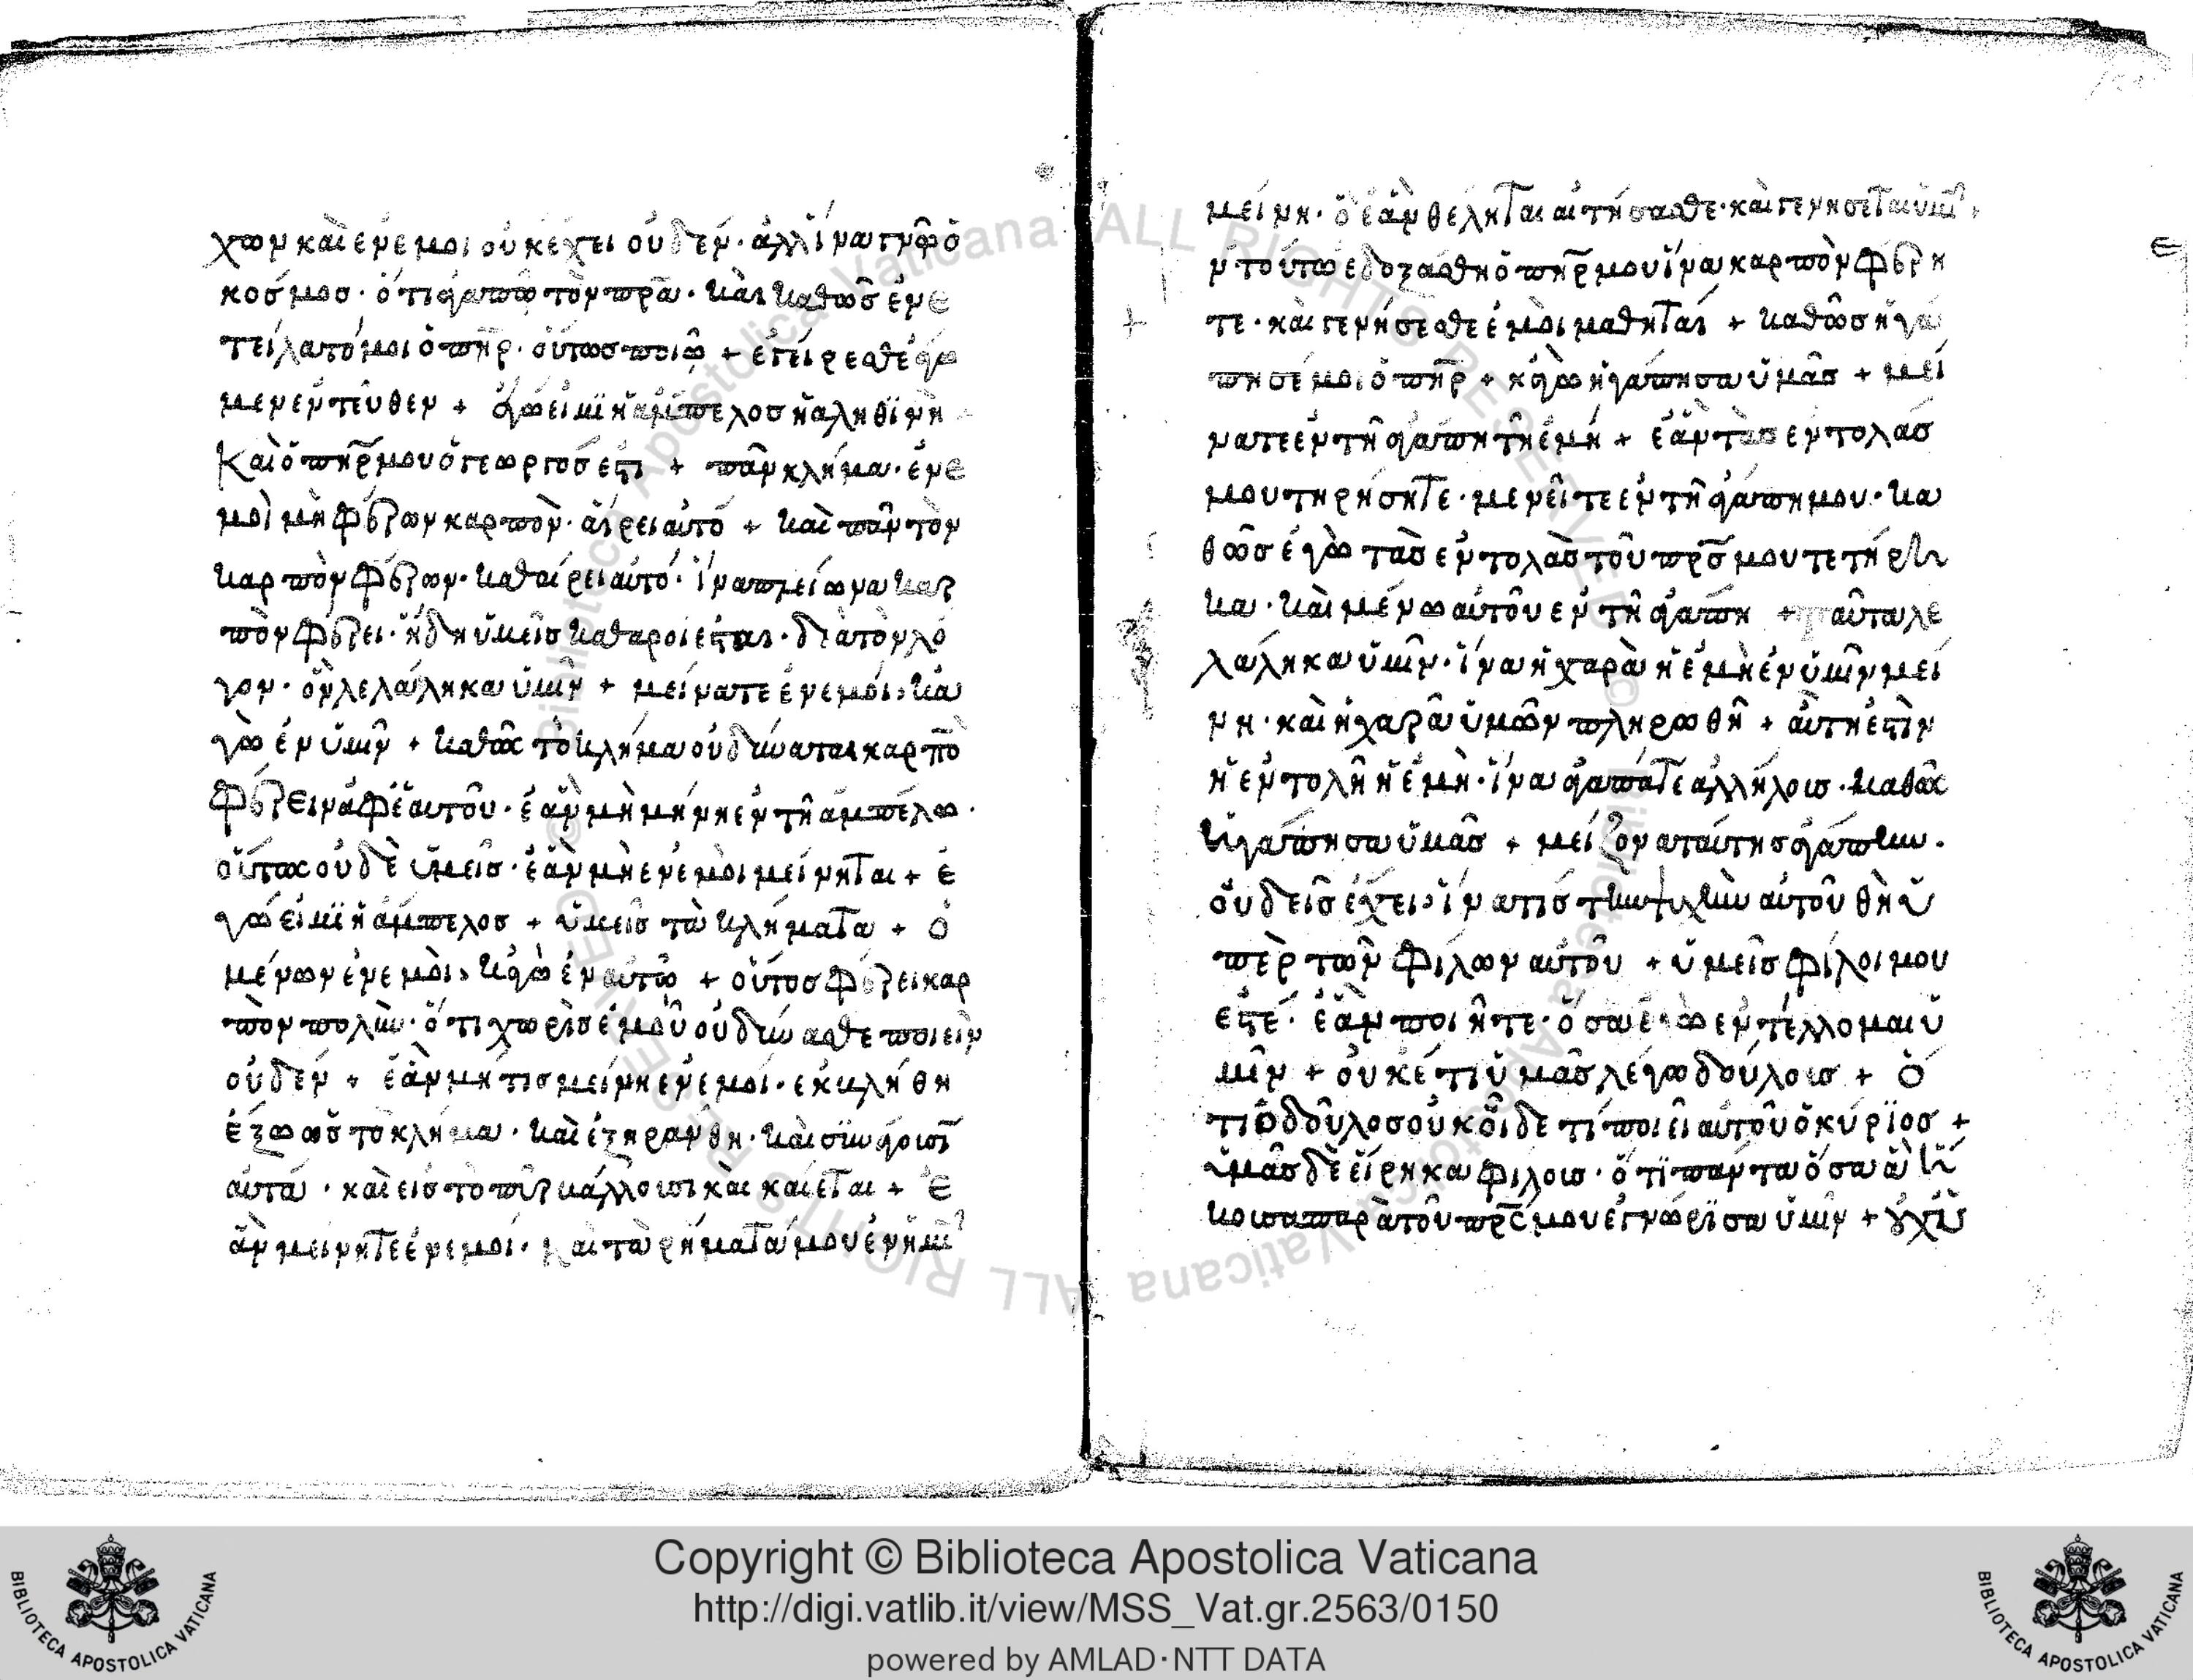 χων καὶ ἐν ἐμοὶ οὐκ ἔχει οὐδέν· ἀλλ ἵνα γνῶ ὁ
κόσμος· ὅτι ἀγαπῶ τὸν πρα· καὶ καθὼς ἐνε
τείλατό μοι ὁ πηρ· οὕτως ποιῶ + ἐγείρεσθε ἄγω
μεν ἐντεῦθεν + ἐγώ εἰμϊ ἡ ἄμπελος ἡ αληθϊνὴ
Καὶ ὁ πηρ μου ὁ γεωργός ἐστι + πᾶν κλῆμα· ἐν ε
μοὶ μὴ φέρων καρπὸν· αἴρει αὐτό + καὶ πᾶν τὸν
καρπὸν φέρων· καθαίρει αὐτό· ἵνα πλείωνα καρ
πὸν φέρει· ἤδη ὑμεῖς καθαροί ἐσται· διὰ τὸν λό
γον· ὃν λελάληκα ὑμῖν + μείνατε ἐν ἐμοί· κα
γὼ ἐν ὑμῖν + καθὼς τὸ κλῆμα οὐ δύναται καρπὸ
φέρειν ἀφ ἑαυτοῦ· ἐὰν μὴ μήνη ἐν τῆ ἀμπέλω·
οὕτως οὐδὲ ὑμεῖς· ἐὰν μὴ ἐν ἐμοὶ μείνηται + ἐ
γώ εἰμϊ ἡ ἄμπελος + ὑμεῖς τὰ κλήματα + ὁ
μένων ἐν ἐμοὶ· κἀγὼ ἐν αὐτῶ + οὗτος φέρει καρ
πὸν πολὺν· ὅτι χωρὶς ἐμοῦ οὐ δύνασθε ποιεῖν
οὐδέν + ἐὰν μή τις μείνη ἐν ἐμοί· ἐκλήθη
ἔξω ὡς τὸ κλῆμα· καὶ ἐξηράνθη· καὶ σϊνάγουσϊ
αὐτά· καὶ εις τὸ πῦρ βάλλουσι καὶ καίεται + Ἐ
ὰν μείνητε ἐν ἐμοί· καὶ τὰ ρήματά μου ἐν ἡμῖν
μείνη· ὃ ἐὰν θέληται αἰτήσασθε· καὶ γενήσεται ὑμῖ
ν· τούτω ἐδοξάσθη ὁ πηρ μου ἵνα καρπὸν φέρη
τε· καὶ γενήσεσθε ἐμοὶ μαθηταί + καθὼς ἠγά
πησέ μοι ὁ πηρ + κἀγὼ ἠγάπησα ὑμᾶς + μεί
νατε ἐν τῆ ἀγάπη τῆ ἐμῆ + ἐὰν τὰς ἐντολάς
μου τηρήσητε· μενεῖτε ἐν τῆ ἀγάπη μου· κα
θὼς ἐγὼ τὰς ἐντολὰς τοῦ πρς μου τετήρη
κα· καὶ μένω αὐτοῦ ἐν τῆ ἀγάπη + ταῦτα λε
λάληκα ὑμῖν· ἵνα ἡ χαρὰ ἡ ἐμὴ ἐν ὑμῖν μεί
νη· καὶ ἡ χαρὰ ὑμῶν πληρωθῆ + αὕτη ἐστὶν
ἡ ἐντολὴ ἡ ἐμὴ· ἵνα ἀγαπᾶτε ἀλλήλους· καθὼς
ἠγάπησα ὑμᾶς + μείζονα ταύτης ἀγάπην·
οὐδεὶς ἔχει· ἵνα τις τὴν ψυχὴν αὐτοῦ θὴ ὑ
πὲρ τῶν φίλων αὐτοῦ + ὑμεῖς φίλοι μου
ἐστέ· ἐὰν ποιῆτε· ὅσα ἐγὼ ἐντέλλομαι ὑ
μῖν + οὐκέτι ὑμᾶς λέγω δούλους + Ὅ
τι ὁ δοῦλος οὐκ οἶδε τί ποιεῖ αὐτοῦ ὁ κύρϊος +
ὑμᾶς δὲ εἴρηκα φίλους· ὅτϊ πάντα ὅσα ἤ
κουσα παρὰ τοῦ πρς μου ἐγνώρϊσα ὑμῖν + οὐχ ὑ